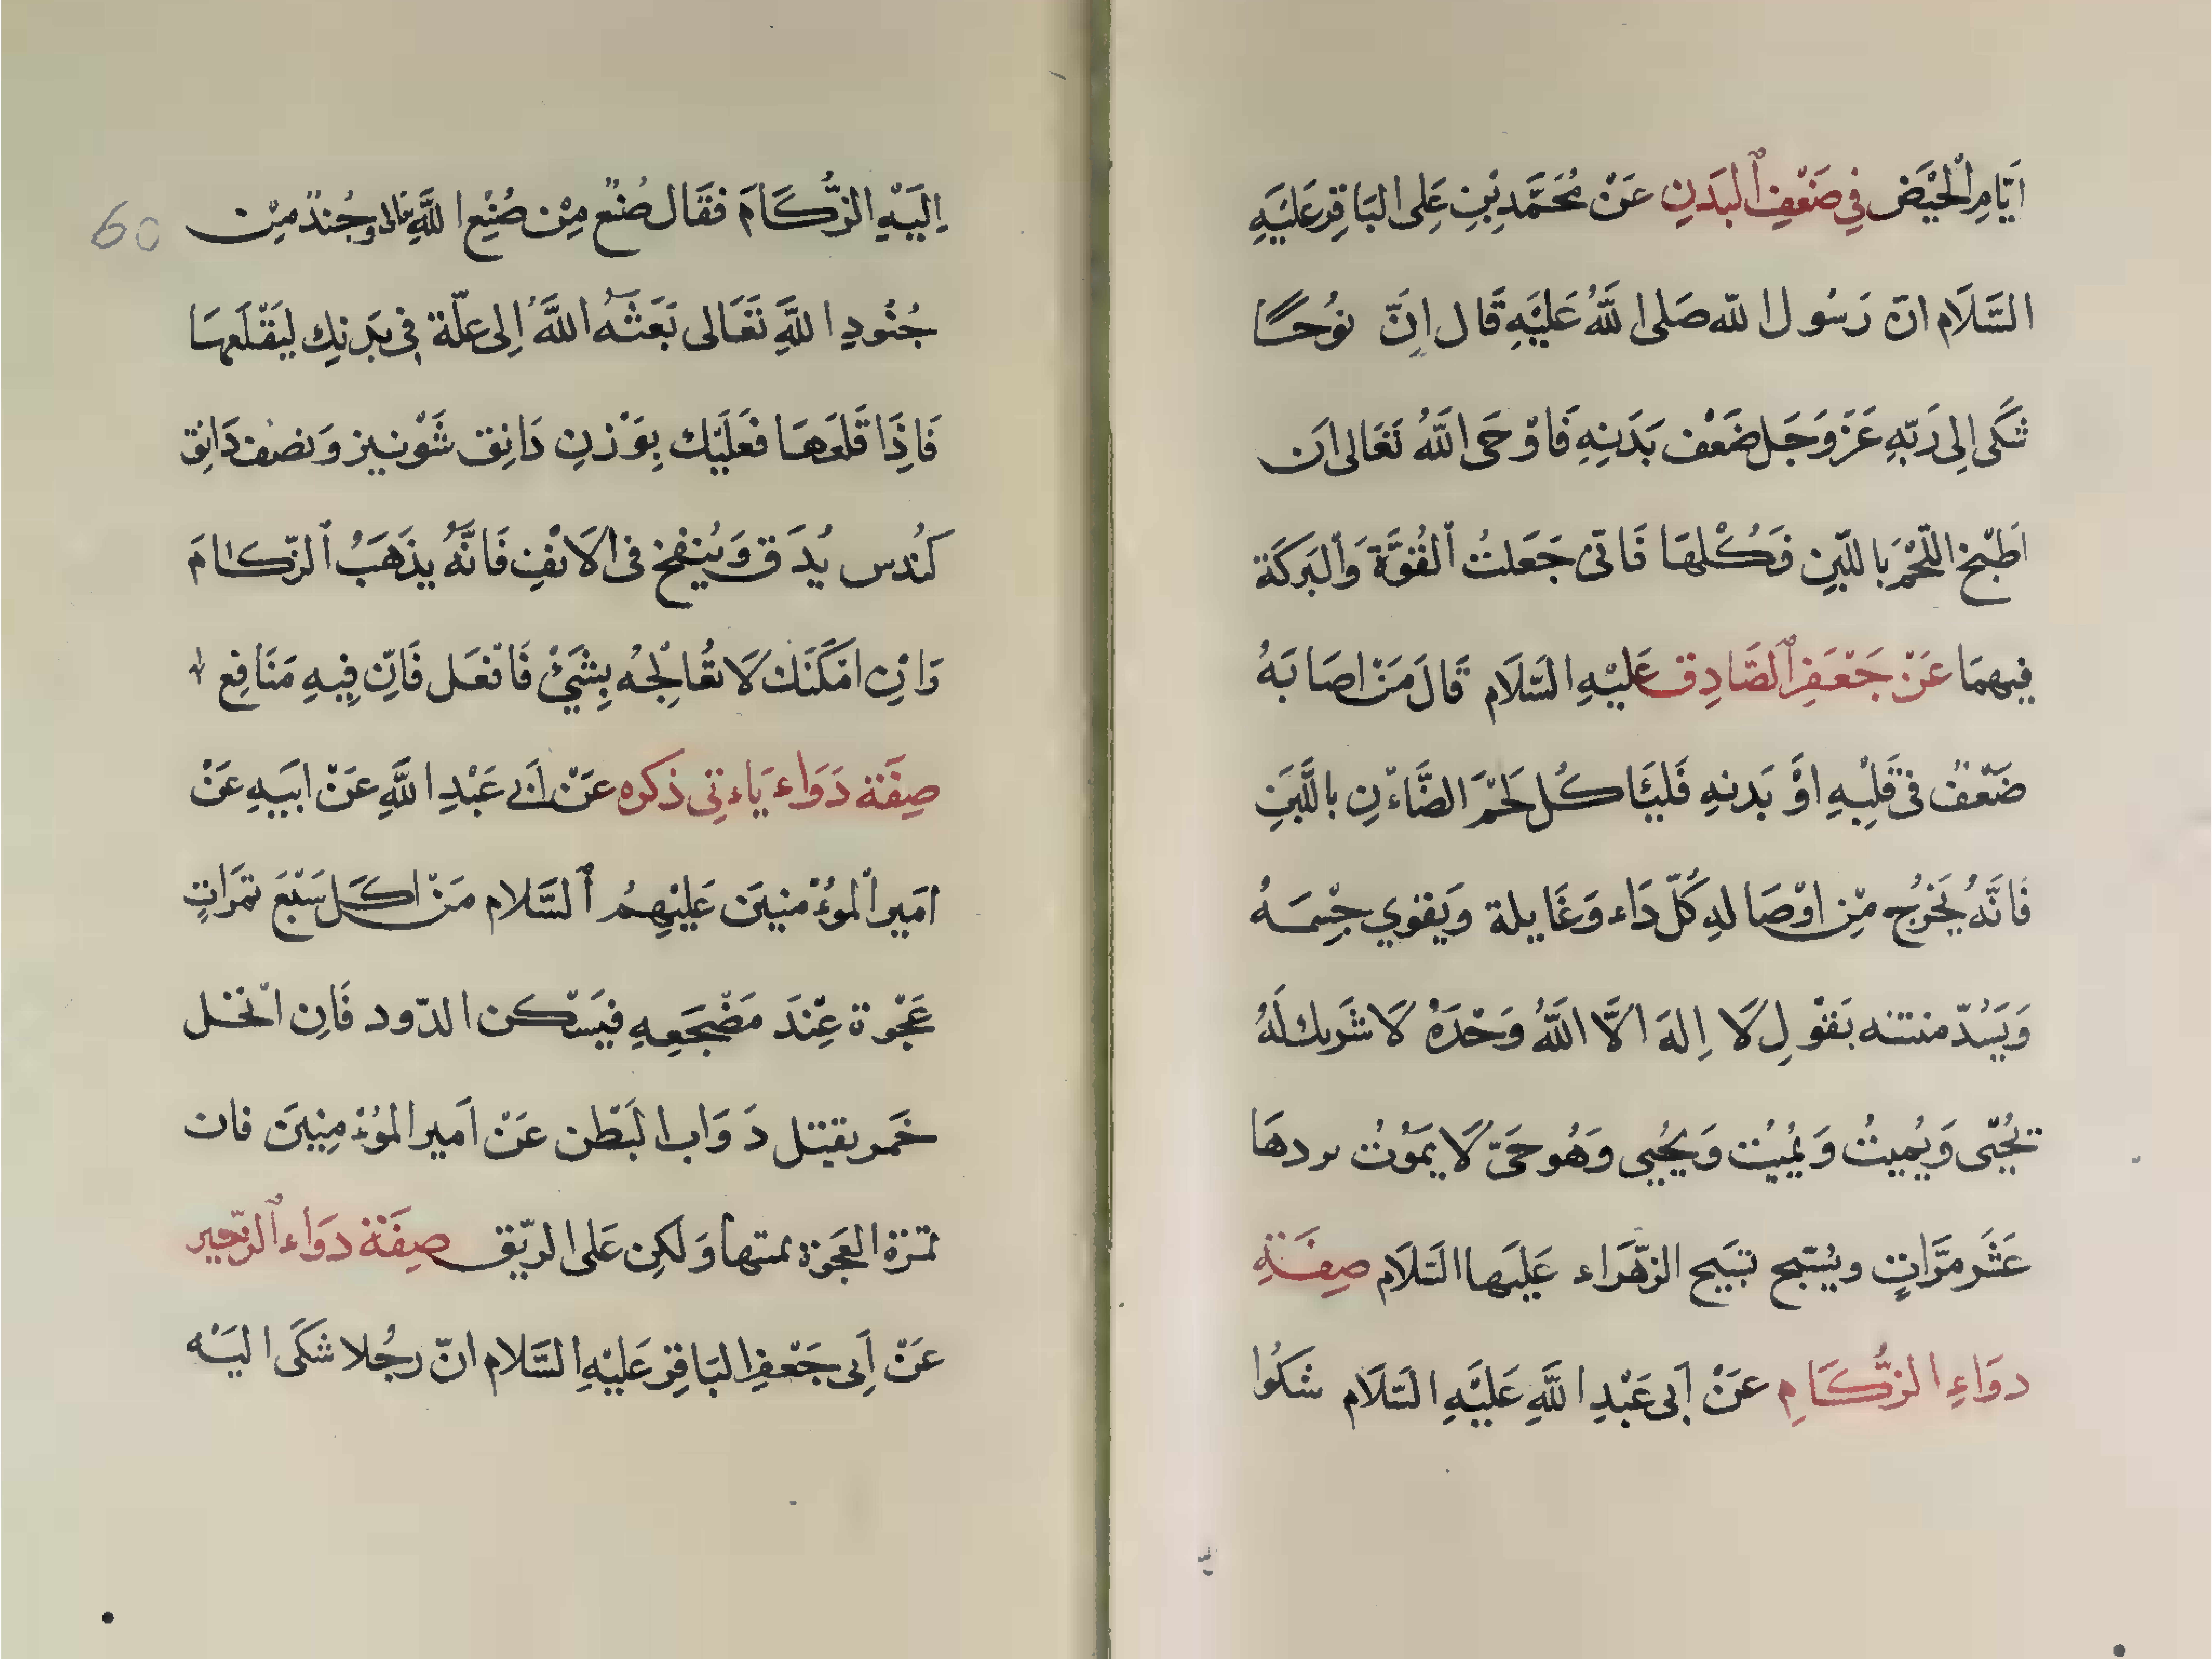 اَيّامِ الْحَيْضِ فِي ضَعْفِ ٱلبَدَنِ عَنْ مُحَمَّدِ بْنِ عَلِى البَاقِرِ عَلَيْهِ
السَّلَام انّ رَسُول الله صَلى اللهُ عَلَيْهِ قَال اِنَّ نُوحًا
شَكَى اِلى رَبّهِ عَزّ وَجَل ضَعْف بَدَنِهِ فَاوْحَى اللهُ تَعَالى اَن
اَطبْخ اللّحْمَ بِاللّبَنِ فَكُلْهَا فَاتى جَعَلتُ ٱلقُوَّةَ وَٱلبَركَة
فِيهمَا عَنْ جَعْفَرِ ٱلصَّادِق عَليْهِ السَّلَام قَالَ مَنْ اصَابَهُ
ضَعْفٌ فى قَلْبِهِ اوْ بَدنهِ فَليَأكُل لَحْمَ الضَّاءْنِ باللَّبَنِ
فَانَّهُ يَخرُج مْن اوْصَالهِ كُلّ دَاء وَغَايلة وَيَقوي جِسْمَهُ
وَيَسُدّ منتنه بَقوْلِ لَا اِلهَ الَّا اللّهُ وَحْدَهُ لَا شَريك لَهُ
يُحْيّى وَيُميتُ وَيُميُت وَيُحْيِى وَهُو حَىّ لَا يَمَوْتُ يردهَا
عَشَر مَرَّاتٍ ويُسَبّح تسَبيح الزهّرَاء عَليَها السَّلَام صِفَةِ
دوَاءِ الزُّكَامِ عَنْ اَبى عَبْدِ اللَّهِ عَليْهِ السَّلَام شَكَوُا
اِلَيْهِ الزُّكَامَ فقَال صُنعٌ مِنْ صُنْعِ اللَّهِ تعالى وجُندٌ مِن
جُنُودِ اللَّهِ تَعَالى بَعَثَهُ اللَّهُ اِلى علّة فى بَدَنِك ليَقْلَعهَا
فَاذِا قَلعَهَا فعَلَيْك بِوَزنِ دَانِق شَوْنيز وَنصْف دَانِق
كُندس يُدَق وَيُنفخ فى الَانْفِ فَانَّهُ يذَهَبْ ٱلزّكامَ
وَانِ امْكَنَكَ لَا تُعَالِجْهُ بِشَيْئٍ فَافعَل فَاِنّ فِيهِ مَنَافِع
صِفَة دَوَاء يَاءتِى ذكره عَنْ اَبى عَبْدِ اللَّهِ عَنْ ابَيهِ عَنْ
امَير الْموُءْمنِينَ عَليْهِمُ ٱلسَّلام مَنْ اكَل سَبْعَ تمَرَاتٍ
عَجْوة عِنْدَ مَضْجَعِهِ فيَسْكن الدّود فَاِن اْنخل
خَمر يقتل دَوَاب البَطْن عَنْ اَمير المُؤمِنِينَ فان
تمرَة العَجَوَة يمتها وَلكِن عَلى الريّق صِفَة دوَاء ٱلزّحير
عَنْ اَبى جَعْفرِ البَاقِرِ عَليْهِ السَّلام انّ رجُلا شكَى اليَهْ
60